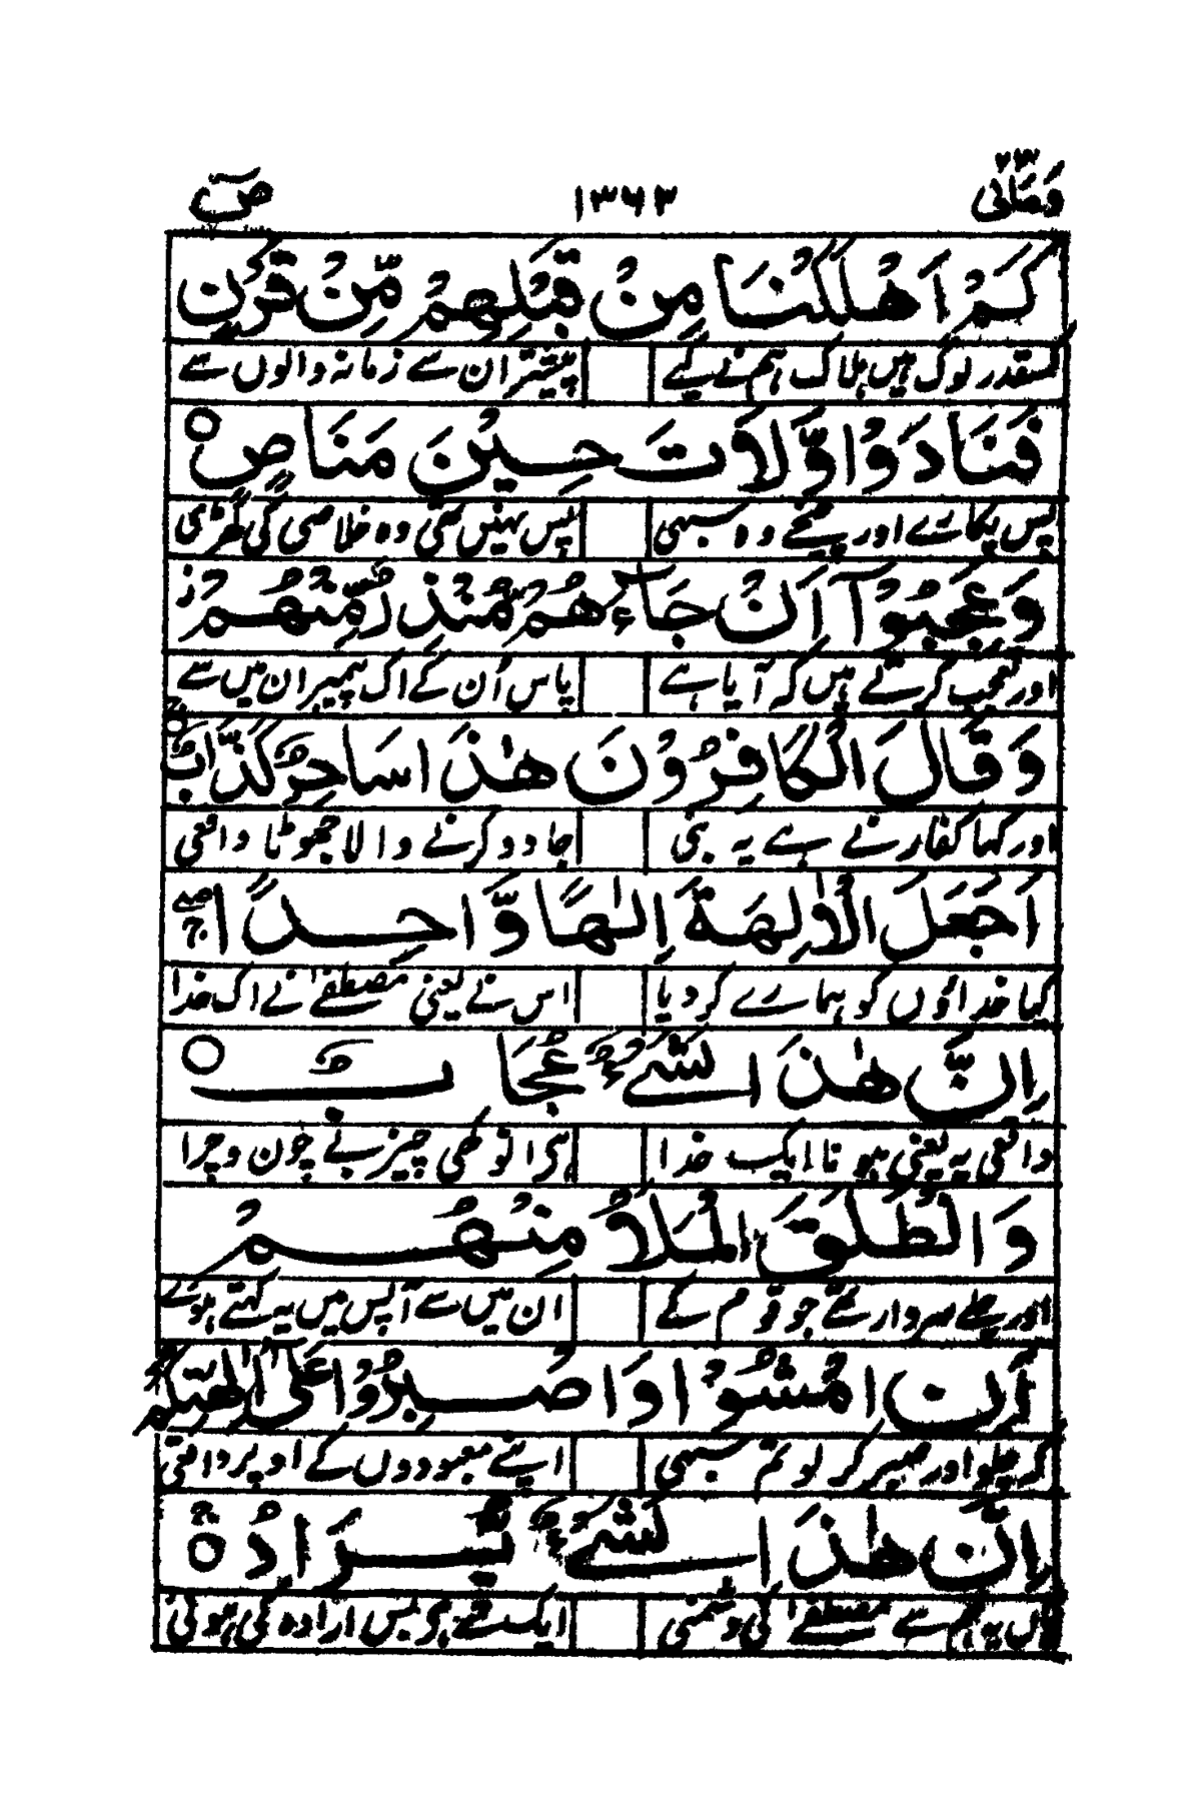 وَمَالِیَ ۲۳ ۱۳۶۳ صٓ
كَمْ اَهْلَكْنَا مِنْ قَبْلِهِمْ مِّنْ قَرْنٍ
کسقدر لوگ ہیں ہلاک ہم نے کیے پیشتر ان سے زمانہ والوں سے
فَنَادَوْا وَّلَاتَ حِيْنَ مَنَاصٍ ○
پس پکارے اور چیخے وہ سبھی پس نہیں تھی وہ خلاصی کی گھڑی
وَعَجِبُوْٓا اَنْ جَآءَهُمْ مُّنْذِرٌ مِّنْهُمْ ز
اور تعجب کرتے ہیں کہ آیا ہے پاس اُن کے اک پیمبر ان میں سے
وَقَالَ الْكَافِرُوْنَ هٰذَا سَاحِرٌ كَذَّابٌ ○
اور کہا کفار نے ہے یہ بھی جادو کرنے والا جھوٹا واقعی
اَجَعَلَ الْاٰلِهَةَ اِلٰهًا وَّاحِدًا ۖ
کیا خداؤں کو ہمارے کر دیا اس نے یعنی مصطفےٰ نے اک خدا
اِنَّ هٰذَا لَشَيْءٌ عُجَابٌ ○
واقعی یہ یعنی ہونا ایک خدا ہے انوکھی چیز بے چون و چرا
وَانْطَلَقَ الْمَلَاُ مِنْهُمْ
اور چلے سردار تھے جو قوم کے ان میں سے آپس میں یہ کہتے ہوئے
اَنِ امْشُوْا وَاصْبِرُوْا عَلٰٓى اٰلِهَتِكُمْ
کہ چلو اور صبر کر لو تم سبھی اپنے معبودوں کے اوپر واقعی
اِنَّ هٰذَا لَشَيْءٌ يُّرَادُ ○
یہ ہم سے مصطفےٰ کی دشمنی ایک شے ہے بس ارادہ کی ہوئی